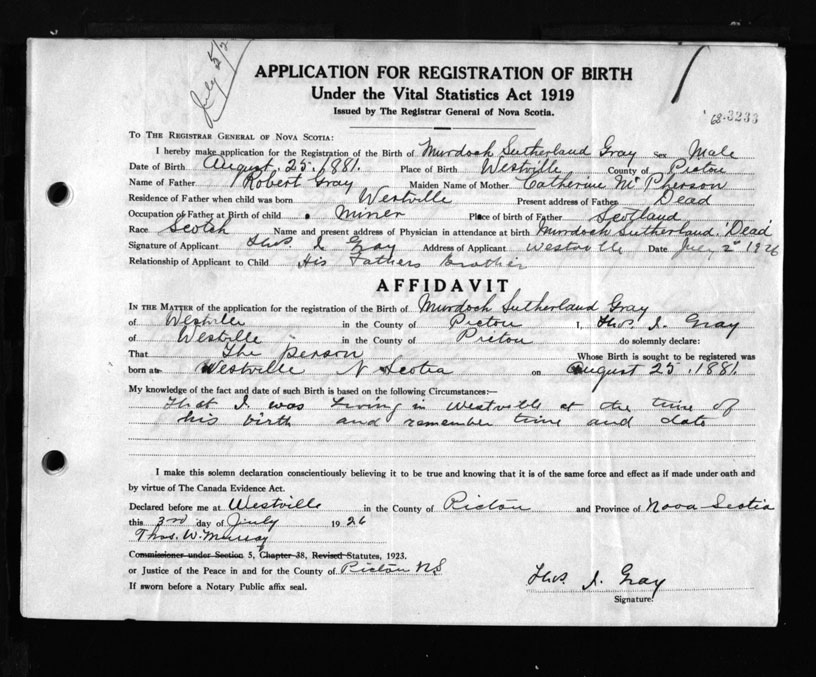 July 5/2
APPLICATION FOR REGISTRATION OF BIRTH
Under the Vital Statistics Act 1919
Issued by The Registrar General of Nova Scotia.
62-3233
TO THE REGISTRAR GENERAL OF NOVA SCOTIA:
I hereby make application for the Registration of the Birth of Murdoch Sutherland Gray sex Male
Date of Birth August. 25. 1881. Place of Birth Westville County of Pictou
Name of Father Robert Gray Maiden Name of Mother Catherine McPherson
Residence of Father when child was born Westville Present address of Father Dead
Occupation of Father at Birth of child Miner Place of birth of Father Scotland
Race Scotch Name and present address of Physician in attendance at birth Murdoch Sutherland. 'Dead'
Signature of Applicant Thos. I. Gray Address of Applicant Westville Date July 2nd 1926
Relationship of Applicant to Child His Fathers brother
AFFIDAVIT
IN THE MATTER of the application for the registration of the Birth of Murdoch Sutherland Gray
of Westville in the County of Pictou I, Thos. I. Gray
of Westville in the County of Pictou do solemnly declare:
That The person Whose Birth is sought to be registered was
born at Westville N Scotia on August 25, 1881.
My knowledge of the fact and date of such Birth is based on the following Circumstances:—
That I was living in Westville at the time of
his birth and remember time and date
I make this solemn declaration conscientiously believing it to be true and knowing that it is of the same force and effect as if made under oath and
by virtue of The Canada Evidence Act.
Declared before me at Westville in the County of Pictou and Province of Nova Scotia
this 3rd day of July 1926
Thos. W. Murray
Commissioner under Section 5, Chapter 38, Revised Statutes, 1923.
or Justice of the Peace in and for the County of Pictou NS
If sworn before a Notary Public affix seal.
Thos. I. Gray
Signature.